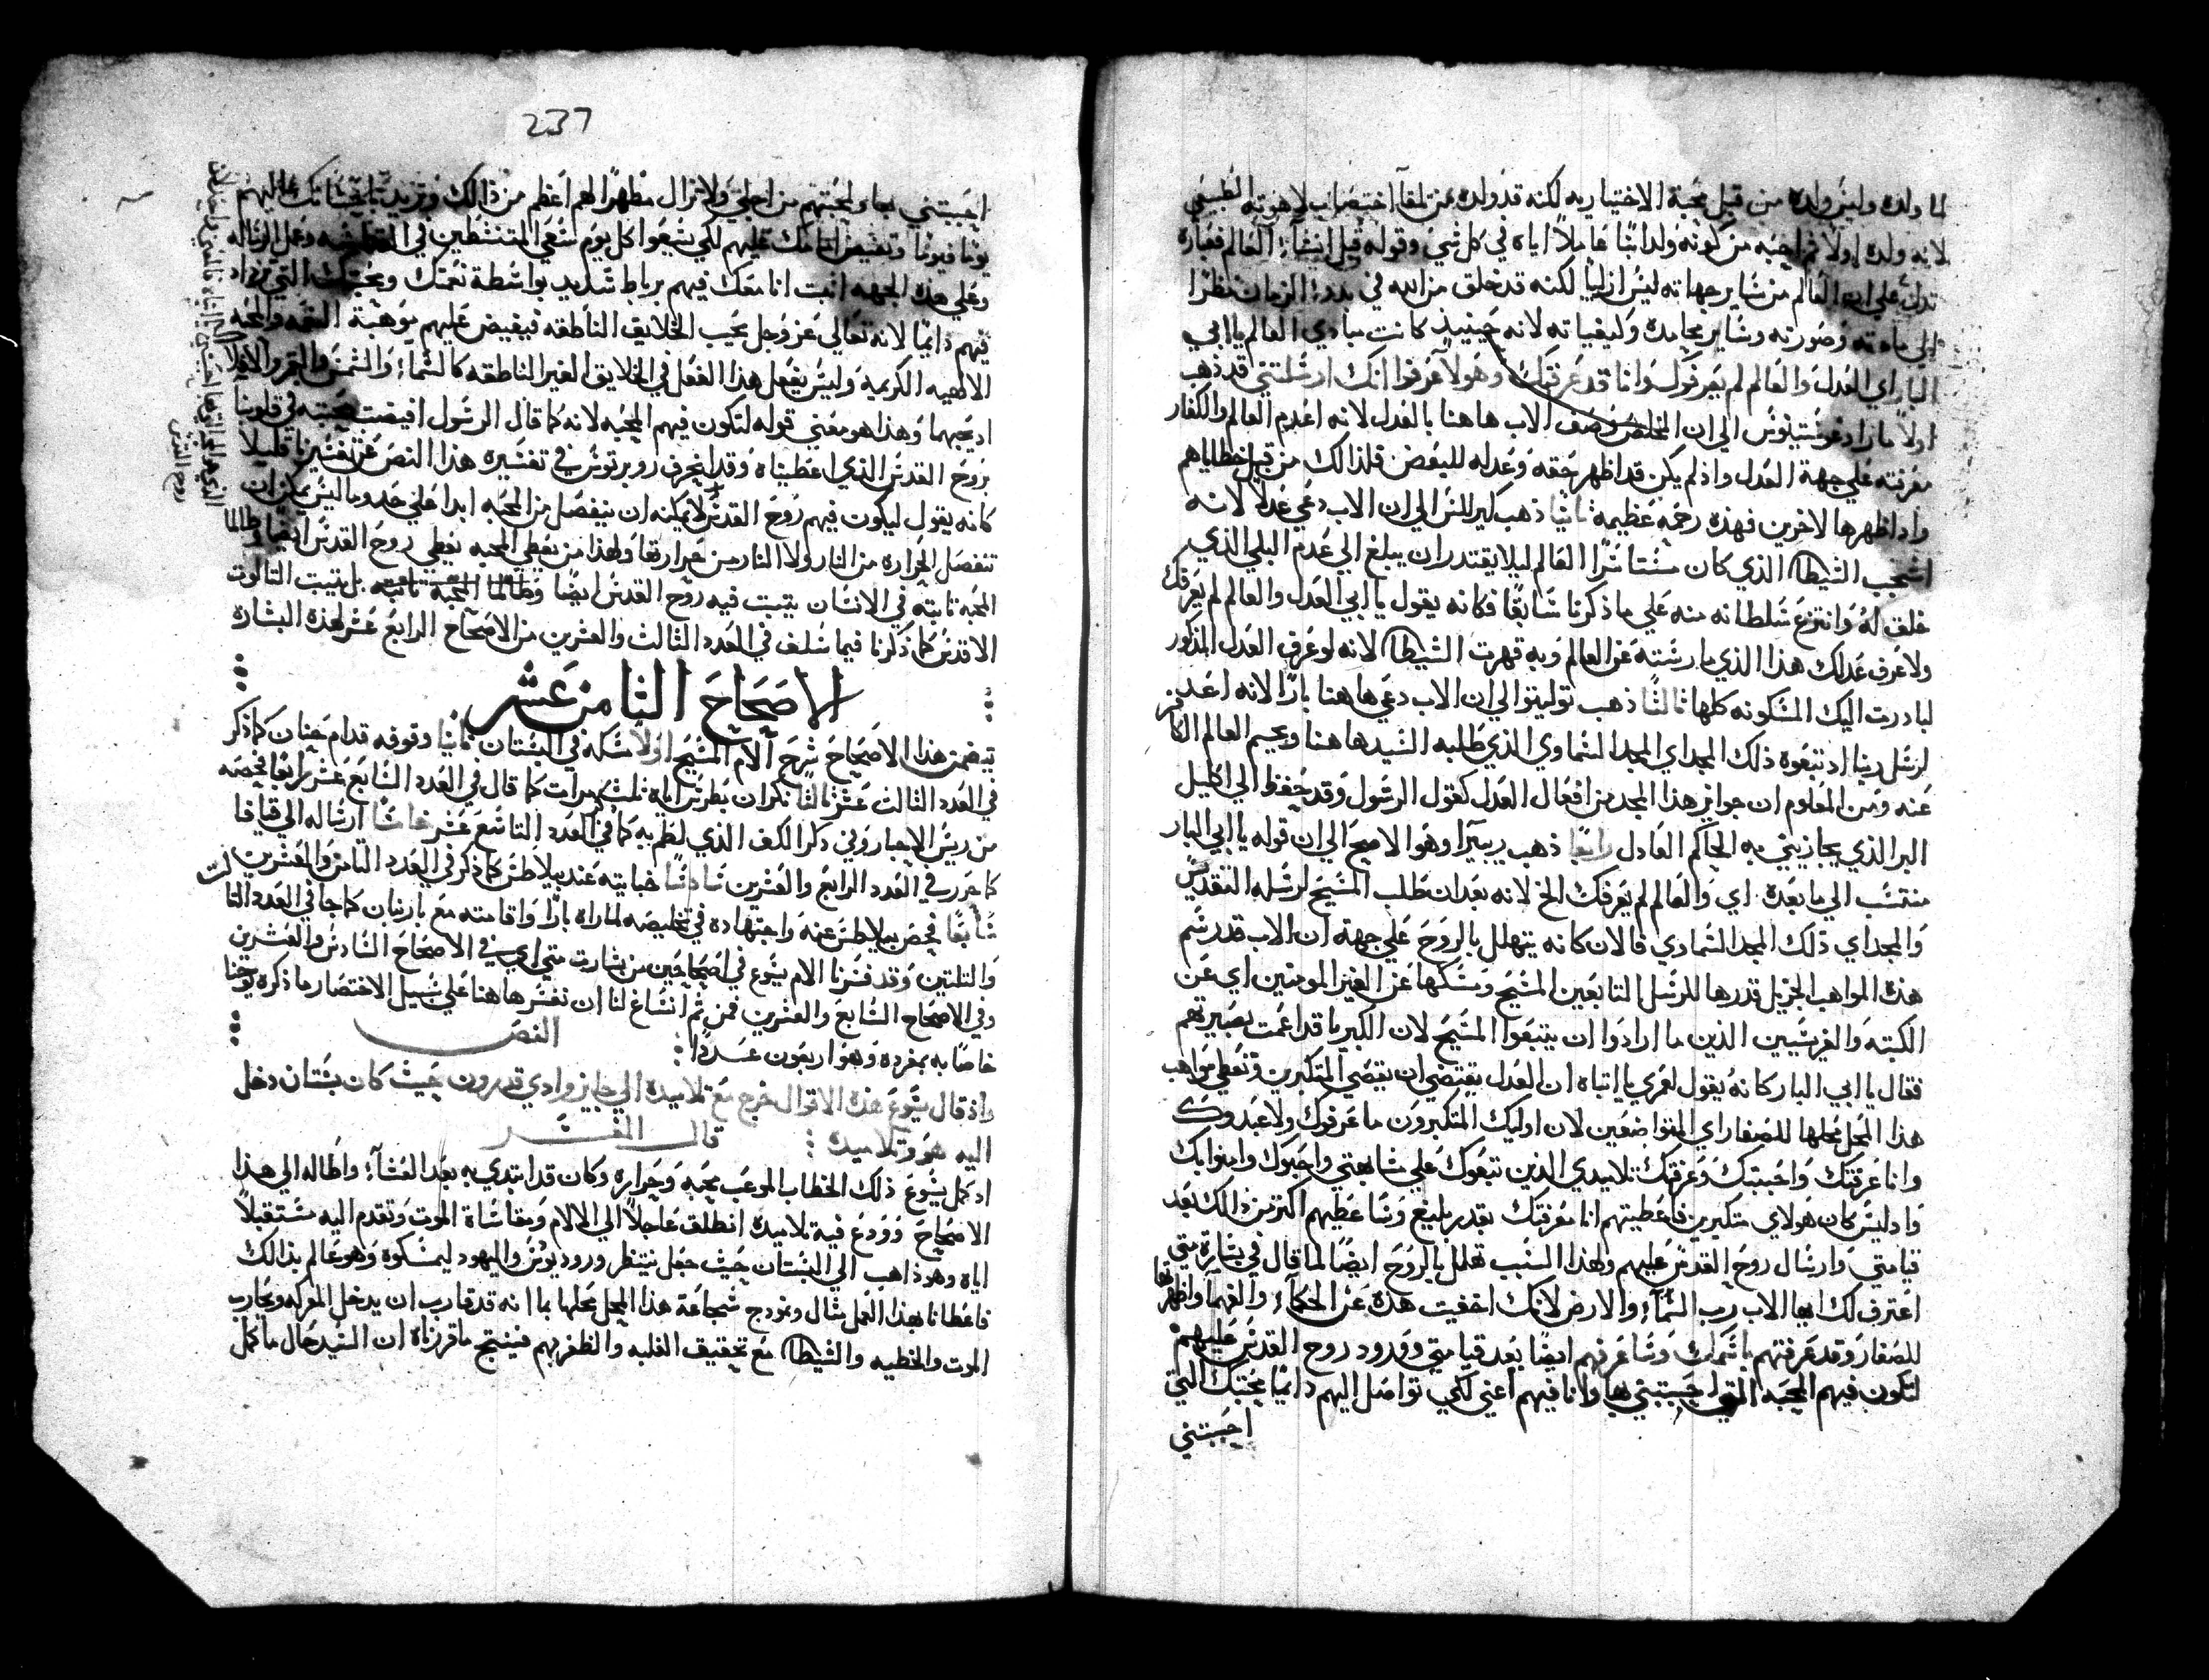 لما ولده وليس ولده من قبل محبة الاختياريه لكنه قد ولده من تلقآ اختصاب لاهوته الطبيعي
لانه ولده اولاً ثم احبه من كونه ولداً ابناً عاملاً اياه في كل شي وقوله قبل انشآء العالم فعباره
تدل علي ان العالم من ساير جهاته ليس ازلياً لكنه قد خلق من الله في بدء الزمان نظراً
الي مادته وصورته وساير محامده وكيفياته لانه حينيذ كانت مبادي العالم يا ابي
البار اي العدل والعالم لم يعرفك وانا قد عرفتك وهولآ عرفوا انك ارسلتني قد ذهب
اولاً مارادغوستينوس الي ان المخلص وصف الاب هاهنا بالعدل لانه اعدم العالم والكفار
معرفته علي جهة العدل واذ لم يكن قد اظهر حقه وعدله للبعض فلذالك من قبل خطاياهم
واذ اظهرها لاخرين فهذه رحمه عظيمة ثانياً ذهب كيرللس الي ان الاب دعي عدلاً لانه
اشجب الشيطان الذي كان مستاسراً العالم ليلا يقتدر ان يبلغ الي عدم البلي الذي
خلق له وانتزع سلطانه منه علي ما ذكرنا سابقاً فكانه يقول يا ابي العدل والعالم لم يعرفك
ولا عرف عدلك هذا الذي مارسته عن العالم وبه قهرت الشيطان لانه لو عرف العدل المذكور
لبادرت اليك المسكونه كلها ثالثاً ذهب توليتو الي ان الاب دعي هاهنا باراً لانه اعد
لرسل ربنا اذ تبعوه ذلك المجد اي المجد السماوي الذي طلبه السيد هاهنا وعيم العالم الكافر
عنه ومن المعلوم ان جوايز هذا المجد من افعال العدل كقول الرسول وقد حفظ الي اكليل
البر الذي يجازيني به الحاكم العادل رابعاً ذهب ريبيرا وهو الاصح الي ان قوله يا ابي البار
منتسب الي ما بعده اي والعالم لم يعرفك الخ لانه بعد ان طلب المسيح لرسله التقديس
والمجد اي ذلك المجد السمادي فالان كانه يتهلل بالروح علي جهة ان الاب قد رسم
هذه المواهب الجزيل قدرها للرسل التابعين المسيح ومسكها عن الغير المومنين اي عن
الكتبه والفريسيين الذين ما ارادوا ان يتبعوا المسيح لان الكبريا قد اعمت بصيرتهم
فقال يا ابي البار كانه يقول لعمري يا ابتاه ان العدل يقتضي ان يقصي المتكبرين وتعطي مواهب
هذا المحل محلها للصغار اي المتواضعين لان اوليك المتكبرون ما عرفوك ولا عبدوك
وانا عرفتك واحببتك وعرفتك تلاميدي الذين تبعوك علي مشابهتي واحبوك وامنوا بك
واد ليس كان هولاي متكبرين فاعطيتهم انا معرفتك بقدر بليغ وساعطيهم اكتر من ذالك بعد
قيامتي وارسال روح القدس عليهم ولهذا السبب تهلل بالروح ايضاً لما قال في بشارة متي
اعترف لك ايها الاب رب السمآء والارض لانك اخفيت هذه عن الحكمآء والفهمآ واظهرتها
للصغار وقد عرفتهم باسمك وساعرفهم ايضاً بعد قيامتي وورود روح القدس عليهم
لتكون فيهم المحبه التي احببتني بها وانا فيهم اعني لكي تواصل اليهم دايماً محبتك التي
احببتني
237
احببتني بها ولمحبتهم من اجلي ولا تزال مظهراً لهم اعظم من ذالك وتزيد عليهم
يوماً فيوماً وتفيض عليهم لكي يسعوا كل يوم سعي المتنشطين في وعمل الرساله
وعلي هذه الجهه اثبت انا معك فيهم برباط شديد بواسطة نعمتك ومحبتك التي تزداد
فيهم دايماً لانه تعالي عز وجل يحب الخلايق الناطقه فيفيض عليهم موهبة النعمه والمحبه
الالهيه الكريمه وليس يفعل هذا الفعل في الخلايق الغير الناطقه كالسمآء والشمس والقمر والافلاك
اد يحبهما وهذا هو معني قوله لتكون فيهم المحبه لانه كما قال الرسول افيضت محبته في قلوبنا
بروح القدس الذي اعطيناه وقد انحرف روبرتوس في تفسيره هذا النص عن تفسيرنا قليلا
كانه يقول ليكون فيهم روح القدس لا يمكنه ان ينفصل من المحبه ابداً علي حد وما ليس يمكن ان
تنفصل الحراره من النار ولا النار من حرارتها ولهذا من يعطي المحبه يعطي روح القدس ايضاً وطالما
المحبه ثابته في الانسان يتبت فيه روح القدس ايضاً وطالما المحبة ثابته بل يتبت التالوت
الاقدس كما ذكرنا فيما سلف في العدد الثالث والعشرين من الاصحاح الرابع عشر لهذه البشاره
الاصحاح الثامن عشر
يتضمن هذا الاصحاح شرح آلام المسيح اولاً مسكه في البستان ثانياً وقوفه قدام حنان كما ذكر
في العدد الثالث عشر ثالثاً نكران بطرس اياه ثلث مرات كما قال في العدد السابع عشر رابعاً فحصه
من ريس الاحبار وفي ذكر الكف الذي لطم به كما في العدد التاسع عشر خامساً ارساله الي قيافا
كما حرر في العدد الرابع والعشرين سادساً خبايته عند بيلاطس كما ذكر في العدد الثامن والعشرين
سابعاً فحص بيلاطس عنه واجتهاده في تخليصه لما راه باراً واقامته مع بارنبان كما جا في العدد الثالث
والثلثين وقد فسرنا الام يسوع في اصحاحين من بشارت متي اي في الاصحاح السادس والعشرين
وفي الاصحاح السابع والعشرين فمن ثم انساغ لنا ان نفسرها هنا علي سبيل الاختصار ما ذكره يوحنا
خاصاً به بمفرده وهو اربعون عدداً النص
واذ قال يسوع هذه الاقوال خرج مع تلاميده الي جايز وادي قدرون حيث كان بستان دخل
اليه هو وتلاميده قال المفسر
اد كمل يسوع ذلك الخطاب الموعب محبه وحراره وكان قد ابتدي به بعد العشآء واطاله الي هذا
الاصحاح وودع فيه تلاميده انطلق عاجلاً الي الالام ومقاساة الموت وتقدم اليه مستقبلاً
اياه وهو ذاهب الي البستان حيث جعل ينتظر ورود يوس واليهود ليمسكوه وهو عالم بذالك
فاعطانا بهذا العمل مثال ونمودج شجاعة هذا المحل محلها بما انه قد قارب ان يدخل المعركه ويحارب
الموت والخطيه والشيطان مع تحقيق الغلبه والظفر بهم فينتج ما قررناه ان السيد حال ما كمل
روح القدس